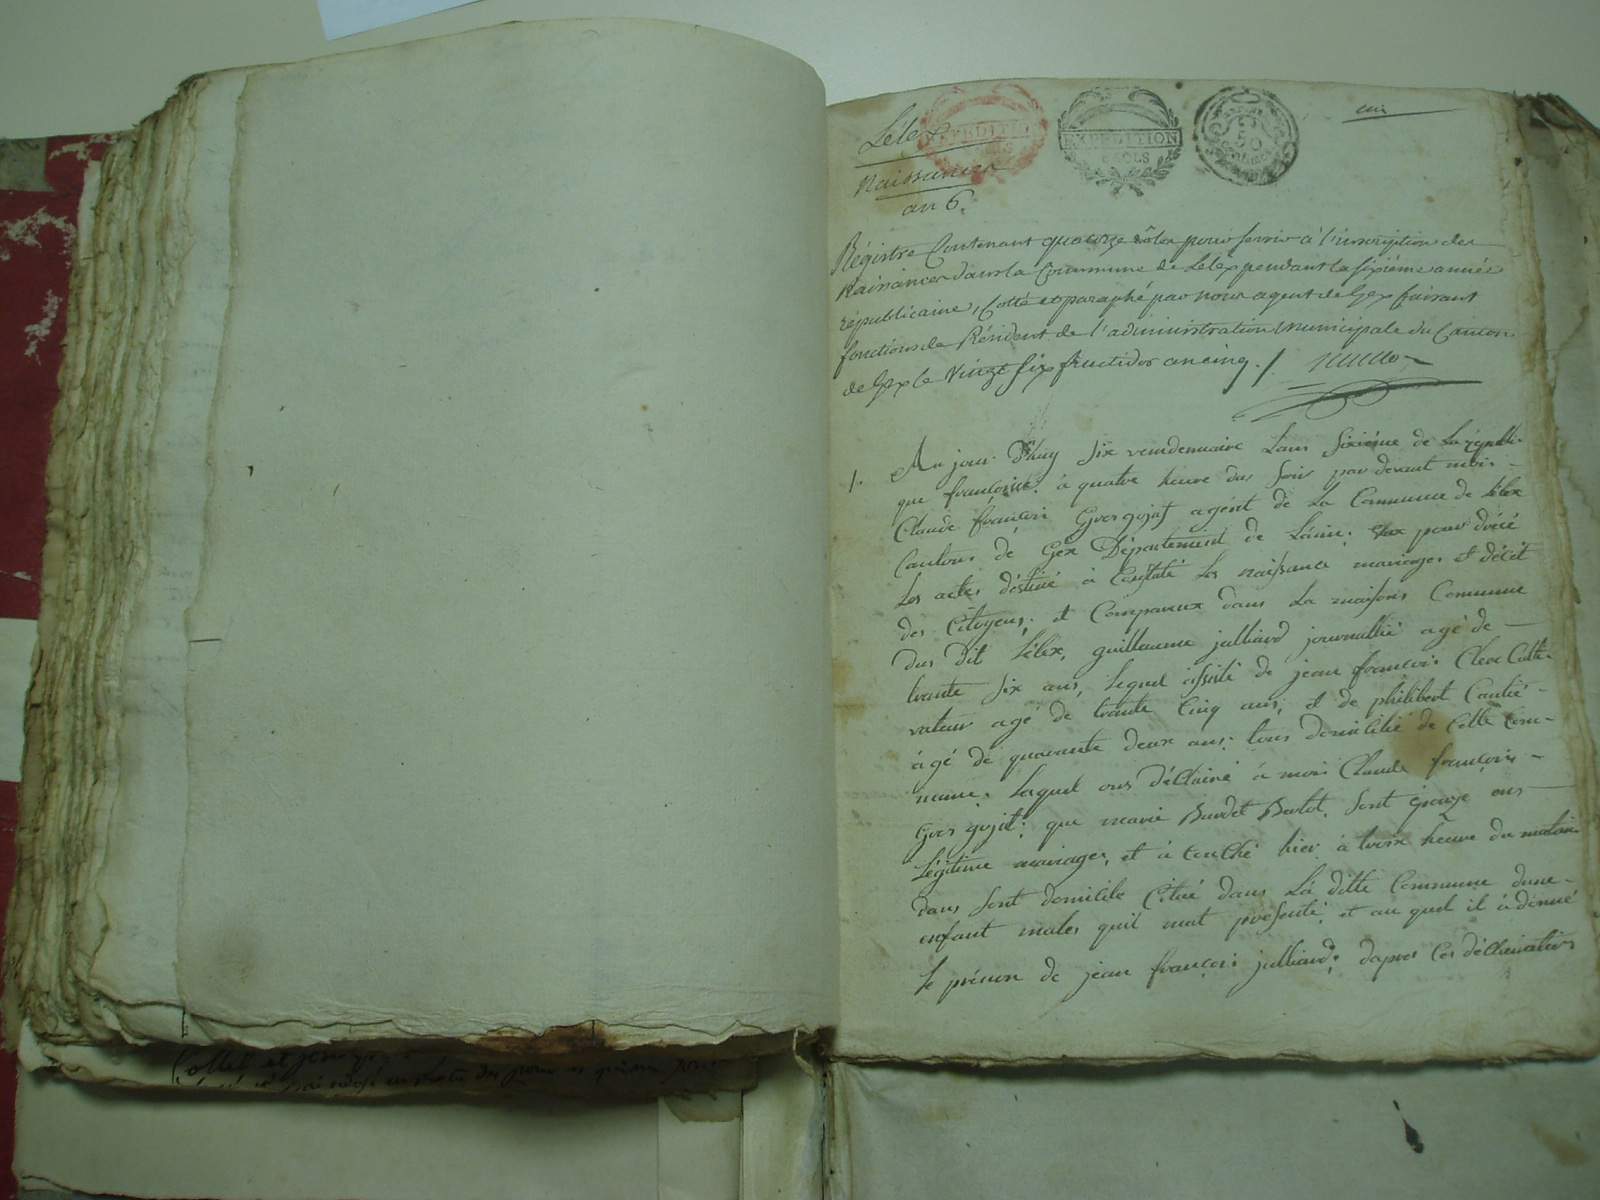 Lélex
EXPEDITION
EXPEDITION
SOLS
50
Naissances
an 6.
Régistre Contenant quatorze rôles pour servir à l'inscription des
Naissances dans la Commune de Lélex pendant la sixiéme année
républicaine, Cotté et paraphé par nous agent de Gex faisant
fonctions de Président de l'administration Municipale du Canton
de Gex le Vingt six fructidor an cinq ./.
1. Au jour d'huy six vendemaire Lans sixiéme de La républi-
que françoise. à quatre heure dus soir par devant mois-
Claude françois Grosgojat agént de La Commune de Lélex
Cantons de Gex Département de Lainn, pour
Les actes déstiné à Constaté Les naissance mariages et décét
des Citoyens, et Compareux dans La maisons Commune
dus dit Lélex, guillaume julliard journallié agé de
trante six ans, Lequel assisté de jean françois Clerc Culti-
vateur agé de trante Cinq ans, et de philibert
âgé de quarante deux ans. tous domicilié de Cette Com-
mune. Lequel ons déClairé à mois Claude françois
Gros gojat, que marie Burdet sont épouze ens
Légitime mariages, et à couché hier à troix heure du matin
dans sont domicile Citué dans La ditte Commune dune
enfant males quil mat présenté, et au quel il à donné
Le prénon de jean françois julliard, dapres Ces déClairation
Collet et